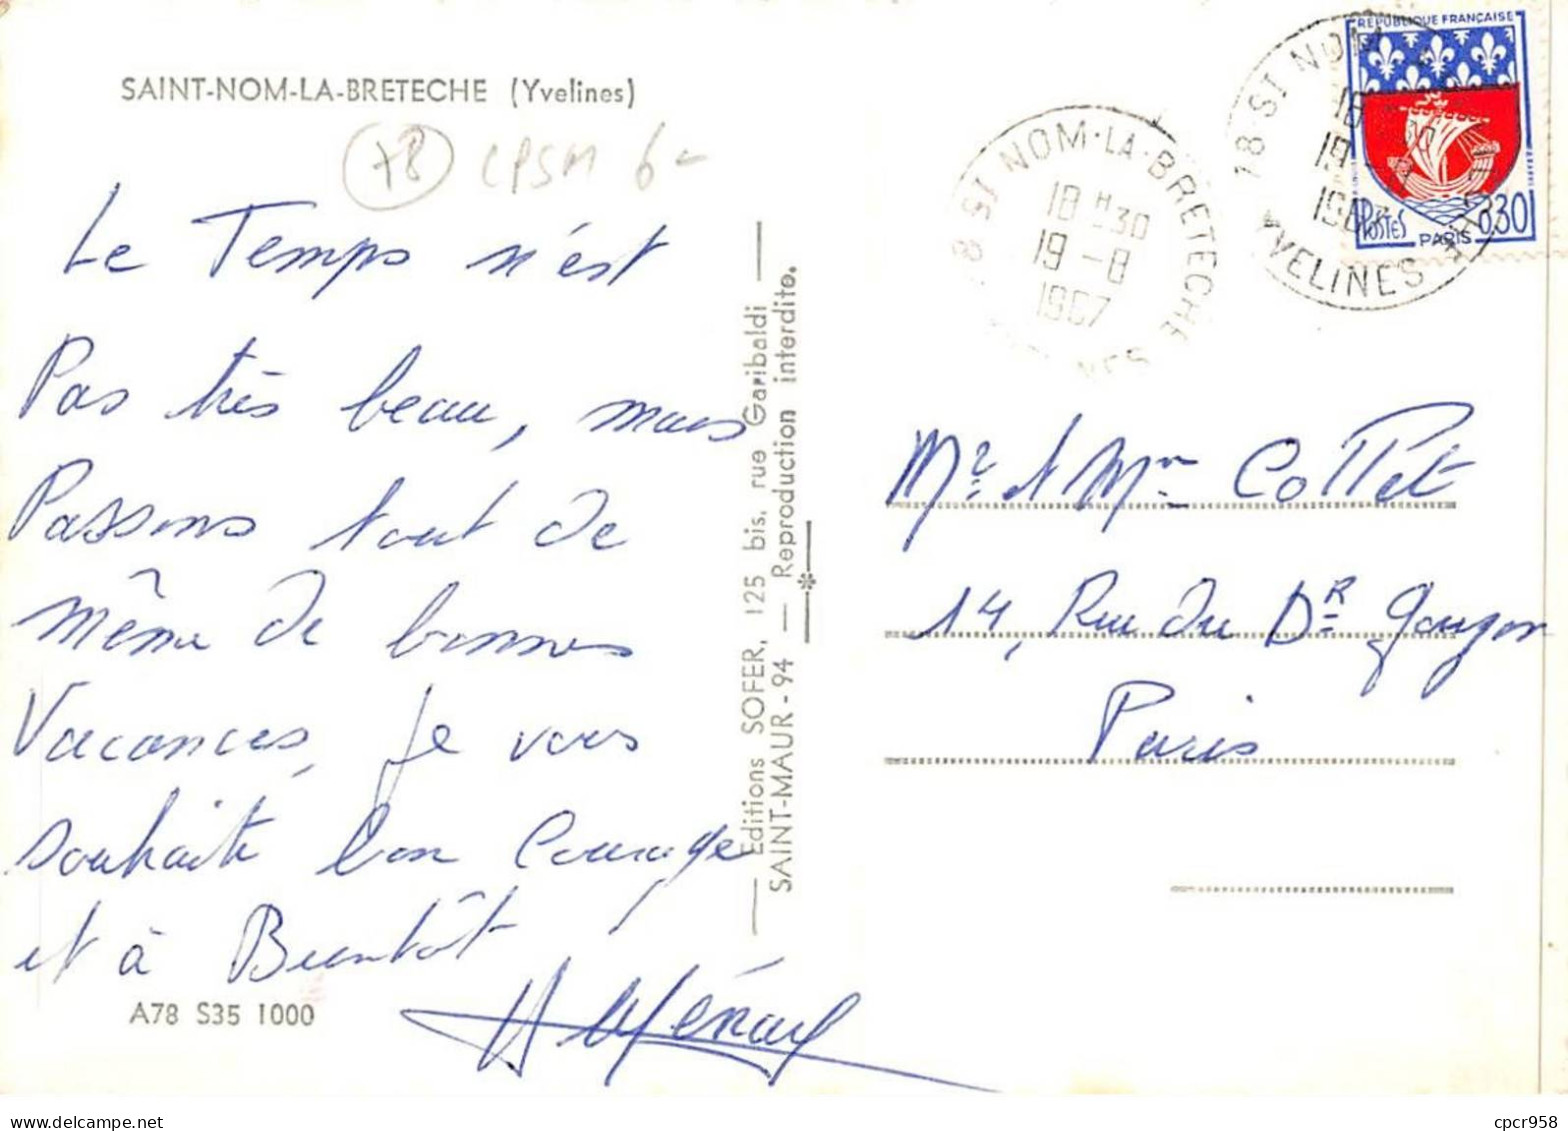 SAINT-NOM-LA-BRETECHE (Yvelines)
78 CPSM 6-
Le Temps n'est
Pas très beau, mais
Passons tout de
même de bonnes
Vacances, je vous
souhaite bon Courage
et à Bientôt
A78 S35 1000
Editions SOFER, 125 bis, rue Garibaldi
SAINT-MAUR - 94 — Reproduction interdite.
8 ST NOM-LA-BRETECHE
18 H 30
19 - 8
1967
78 ST NOM
18
19
YVELINES
REPUBLIQUE FRANÇAISE
POSTES
PARIS
0,30
Mr et Mme Collet
14, Rue du Dr
Paris
cpcr958